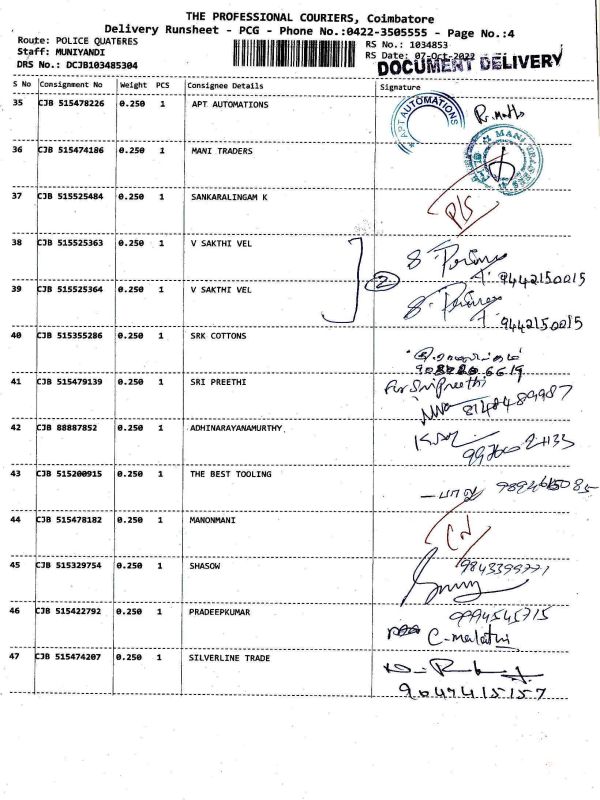 THE PROFESSIONAL COURIERS, Coimbatore
Delivery Runsheet - PCG - Phone No.:0422-3505555 - Page No.:4
Route: POLICE QUATERES
RS No.: 1034853
Staff: MUNIYANDI
RS Date: 07-Oct-2022
DRS No.: DCJB103485304
DOCUMENT DELIVERY
S No Consignment No Weight PCS Consignee Details Signature
35 CJB 515478226 0.250 1 APT AUTOMATIONS
APT AUTOMATIONS
36 CJB 515474186 0.250 1 MANI TRADERS
MANI TRADERS
37 CJB 515525484 0.250 1 SANKARALINGAM K
P/S
38 CJB 515525363 0.250 1 V SAKTHI VEL
2
9442150015
39 CJB 515525364 0.250 1 V SAKTHI VEL
9442150015
40 CJB 515355286 0.250 1 SRK COTTONS
41 CJB 515479139 0.250 1 SRI PREETHI
for Sri Preethi
8148489987
42 CJB 88887852 0.250 1 ADHINARAYANAMURTHY
43 CJB 515200915 0.250 1 THE BEST TOOLING
44 CJB 515478182 0.250 1 MANONMANI
45 CJB 515329754 0.250 1 SHASOW
9843399771
46 CJB 515422792 0.250 1 PRADEEPKUMAR
9994545715
C-malathi
47 CJB 515474207 0.250 1 SILVERLINE TRADE
9047415157